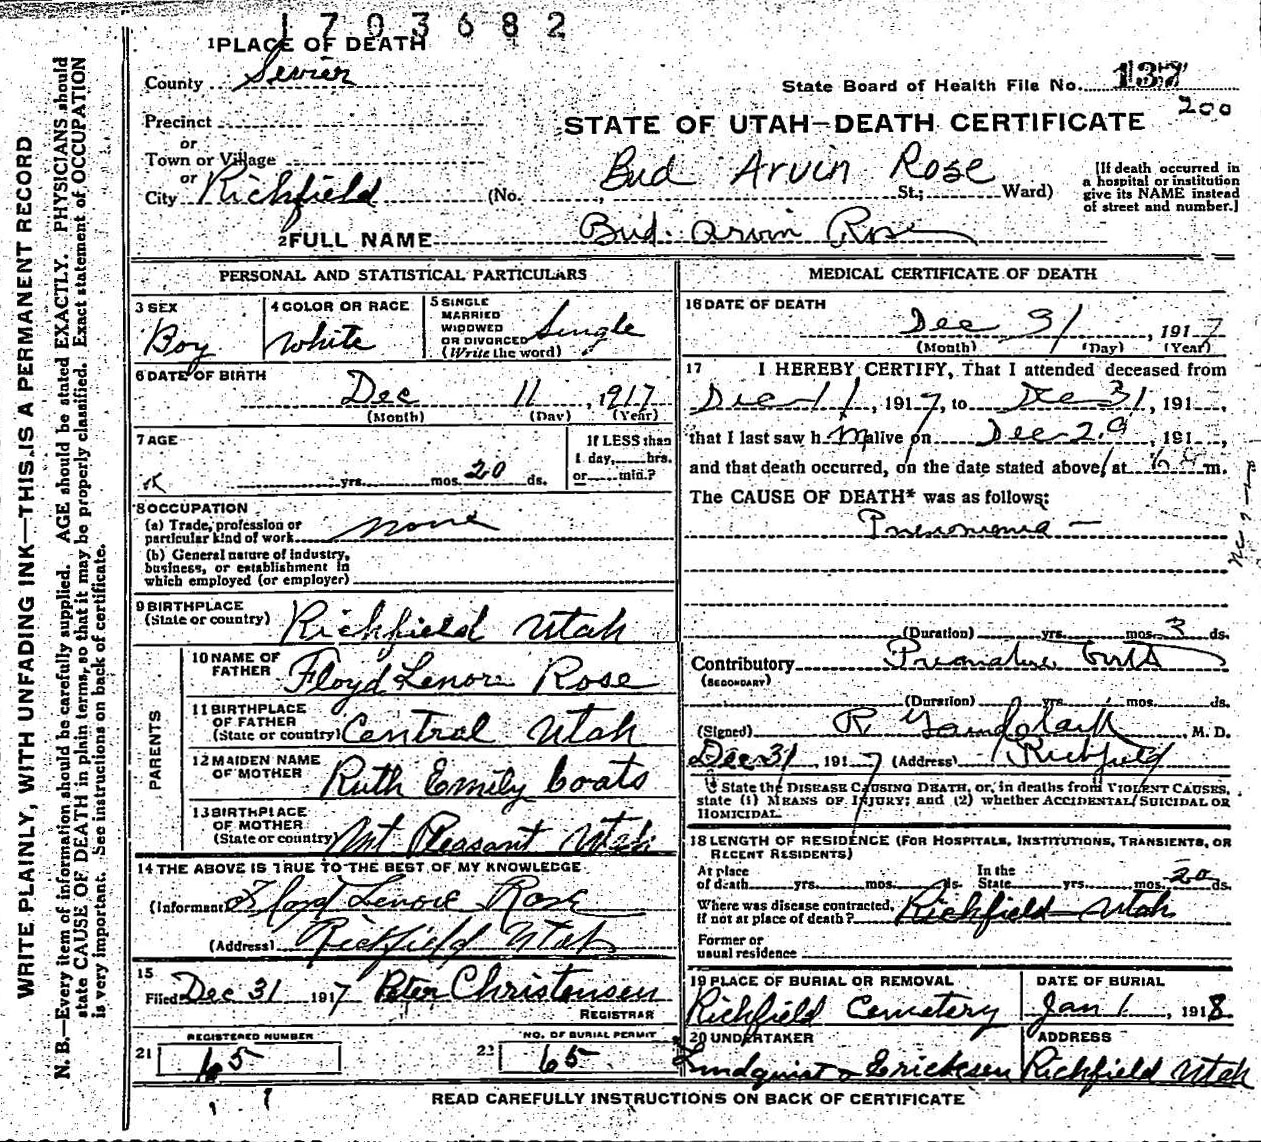 1703682
1 PLACE OF DEATH
County Sevier
State Board of Health File No. 137
200
Precinct
or
Town or Village
or
City Richfield (No. , St.; Ward)
STATE OF UTAH—DEATH CERTIFICATE
Bud Arvin Rose
[If death occurred in
a hospital or institution
give its NAME instead
of street and number.]
2 FULL NAME Bud Arvin Rose
WRITE PLAINLY, WITH UNFADING INK—THIS IS A PERMANENT RECORD
N. B.—Every item of information should be carefully supplied. AGE should be stated EXACTLY. PHYSICIANS should
state CAUSE OF DEATH in plain terms, so that it may be properly classified. Exact statement of OCCUPATION
is very important. See instructions on back of certificate.
PERSONAL AND STATISTICAL PARTICULARS
3 SEX
Boy
4 COLOR OR RACE
White
5 SINGLE
MARRIED
WIDOWED
OR DIVORCED
(Write the word)
Single
6 DATE OF BIRTH
Dec 11, 1917
(Month) (Day) (Year)
7 AGE
yrs. mos. 20 ds.
If LESS than
1 day, hrs.
or min.?
8 OCCUPATION
(a) Trade, profession or
particular kind of work none
(b) General nature of industry,
business, or establishment in
which employed (or employer)
9 BIRTHPLACE
(State or country) Richfield Utah
PARENTS
10 NAME OF
FATHER Floyd Lenore Rose
11 BIRTHPLACE
OF FATHER
(State or country) Central Utah
12 MAIDEN NAME
OF MOTHER Ruth Emily Coats
13 BIRTHPLACE
OF MOTHER
(State or country) Mt Pleasant Utah
14 THE ABOVE IS TRUE TO THE BEST OF MY KNOWLEDGE
(Informant Floyd Lenore Rose
(Address) Richfield Utah
15
Filed Dec 31 1917 Peter Christensen
REGISTRAR
REGISTERED NUMBER
21 65
NO. OF BURIAL PERMIT
22 65
MEDICAL CERTIFICATE OF DEATH
16 DATE OF DEATH
Dec 31, 1917
(Month) (Day) (Year)
17 I HEREBY CERTIFY, That I attended deceased from
Dec 11, 1917, to Dec 31, 191 ,
that I last saw him alive on Dec 29, 191 ,
and that death occurred, on the date stated above, at 6 m.
The CAUSE OF DEATH* was as follows:
Pneumonia —
(Duration) yrs. mos. 3 ds.
Contributory Premature birth
(SECONDARY)
(Duration) yrs. mos. ds.
(Signed) R , M. D.
Dec 31, 1917 (Address) Richfield
State the DISEASE CAUSING DEATH, or, in deaths from VIOLENT CAUSES,
state (1) MEANS OF INJURY; and (2) whether ACCIDENTAL, SUICIDAL OR
HOMICIDAL.
18 LENGTH OF RESIDENCE (FOR HOSPITALS, INSTITUTIONS, TRANSIENTS, OR
RECENT RESIDENTS)
At place
of death yrs. mos. ds.
In the
State yrs. mos. 20 ds.
Where was disease contracted,
if not at place of death? Richfield Utah
Former or
usual residence
19 PLACE OF BURIAL OR REMOVAL
Richfield Cemetery
DATE OF BURIAL
Jan 1, 1918
20 UNDERTAKER
Lundquist & Ericksen
ADDRESS
Richfield Utah
READ CAREFULLY INSTRUCTIONS ON BACK OF CERTIFICATE